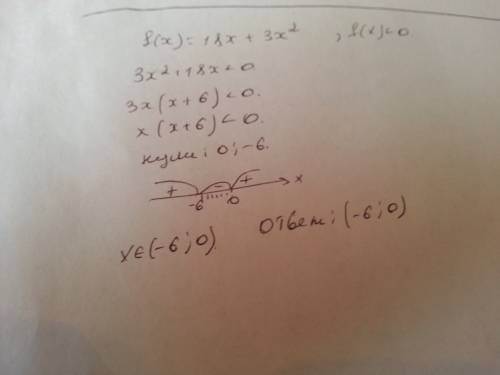 f(x) = 18x + 3x² , f(x)<0.
3x²+18x<0
3x(x+6)<0.
x(x+6)<0.
нули: 0; -6.
+ - + x
-6 0
x∈(-6;0). Ответ: (-6;0)